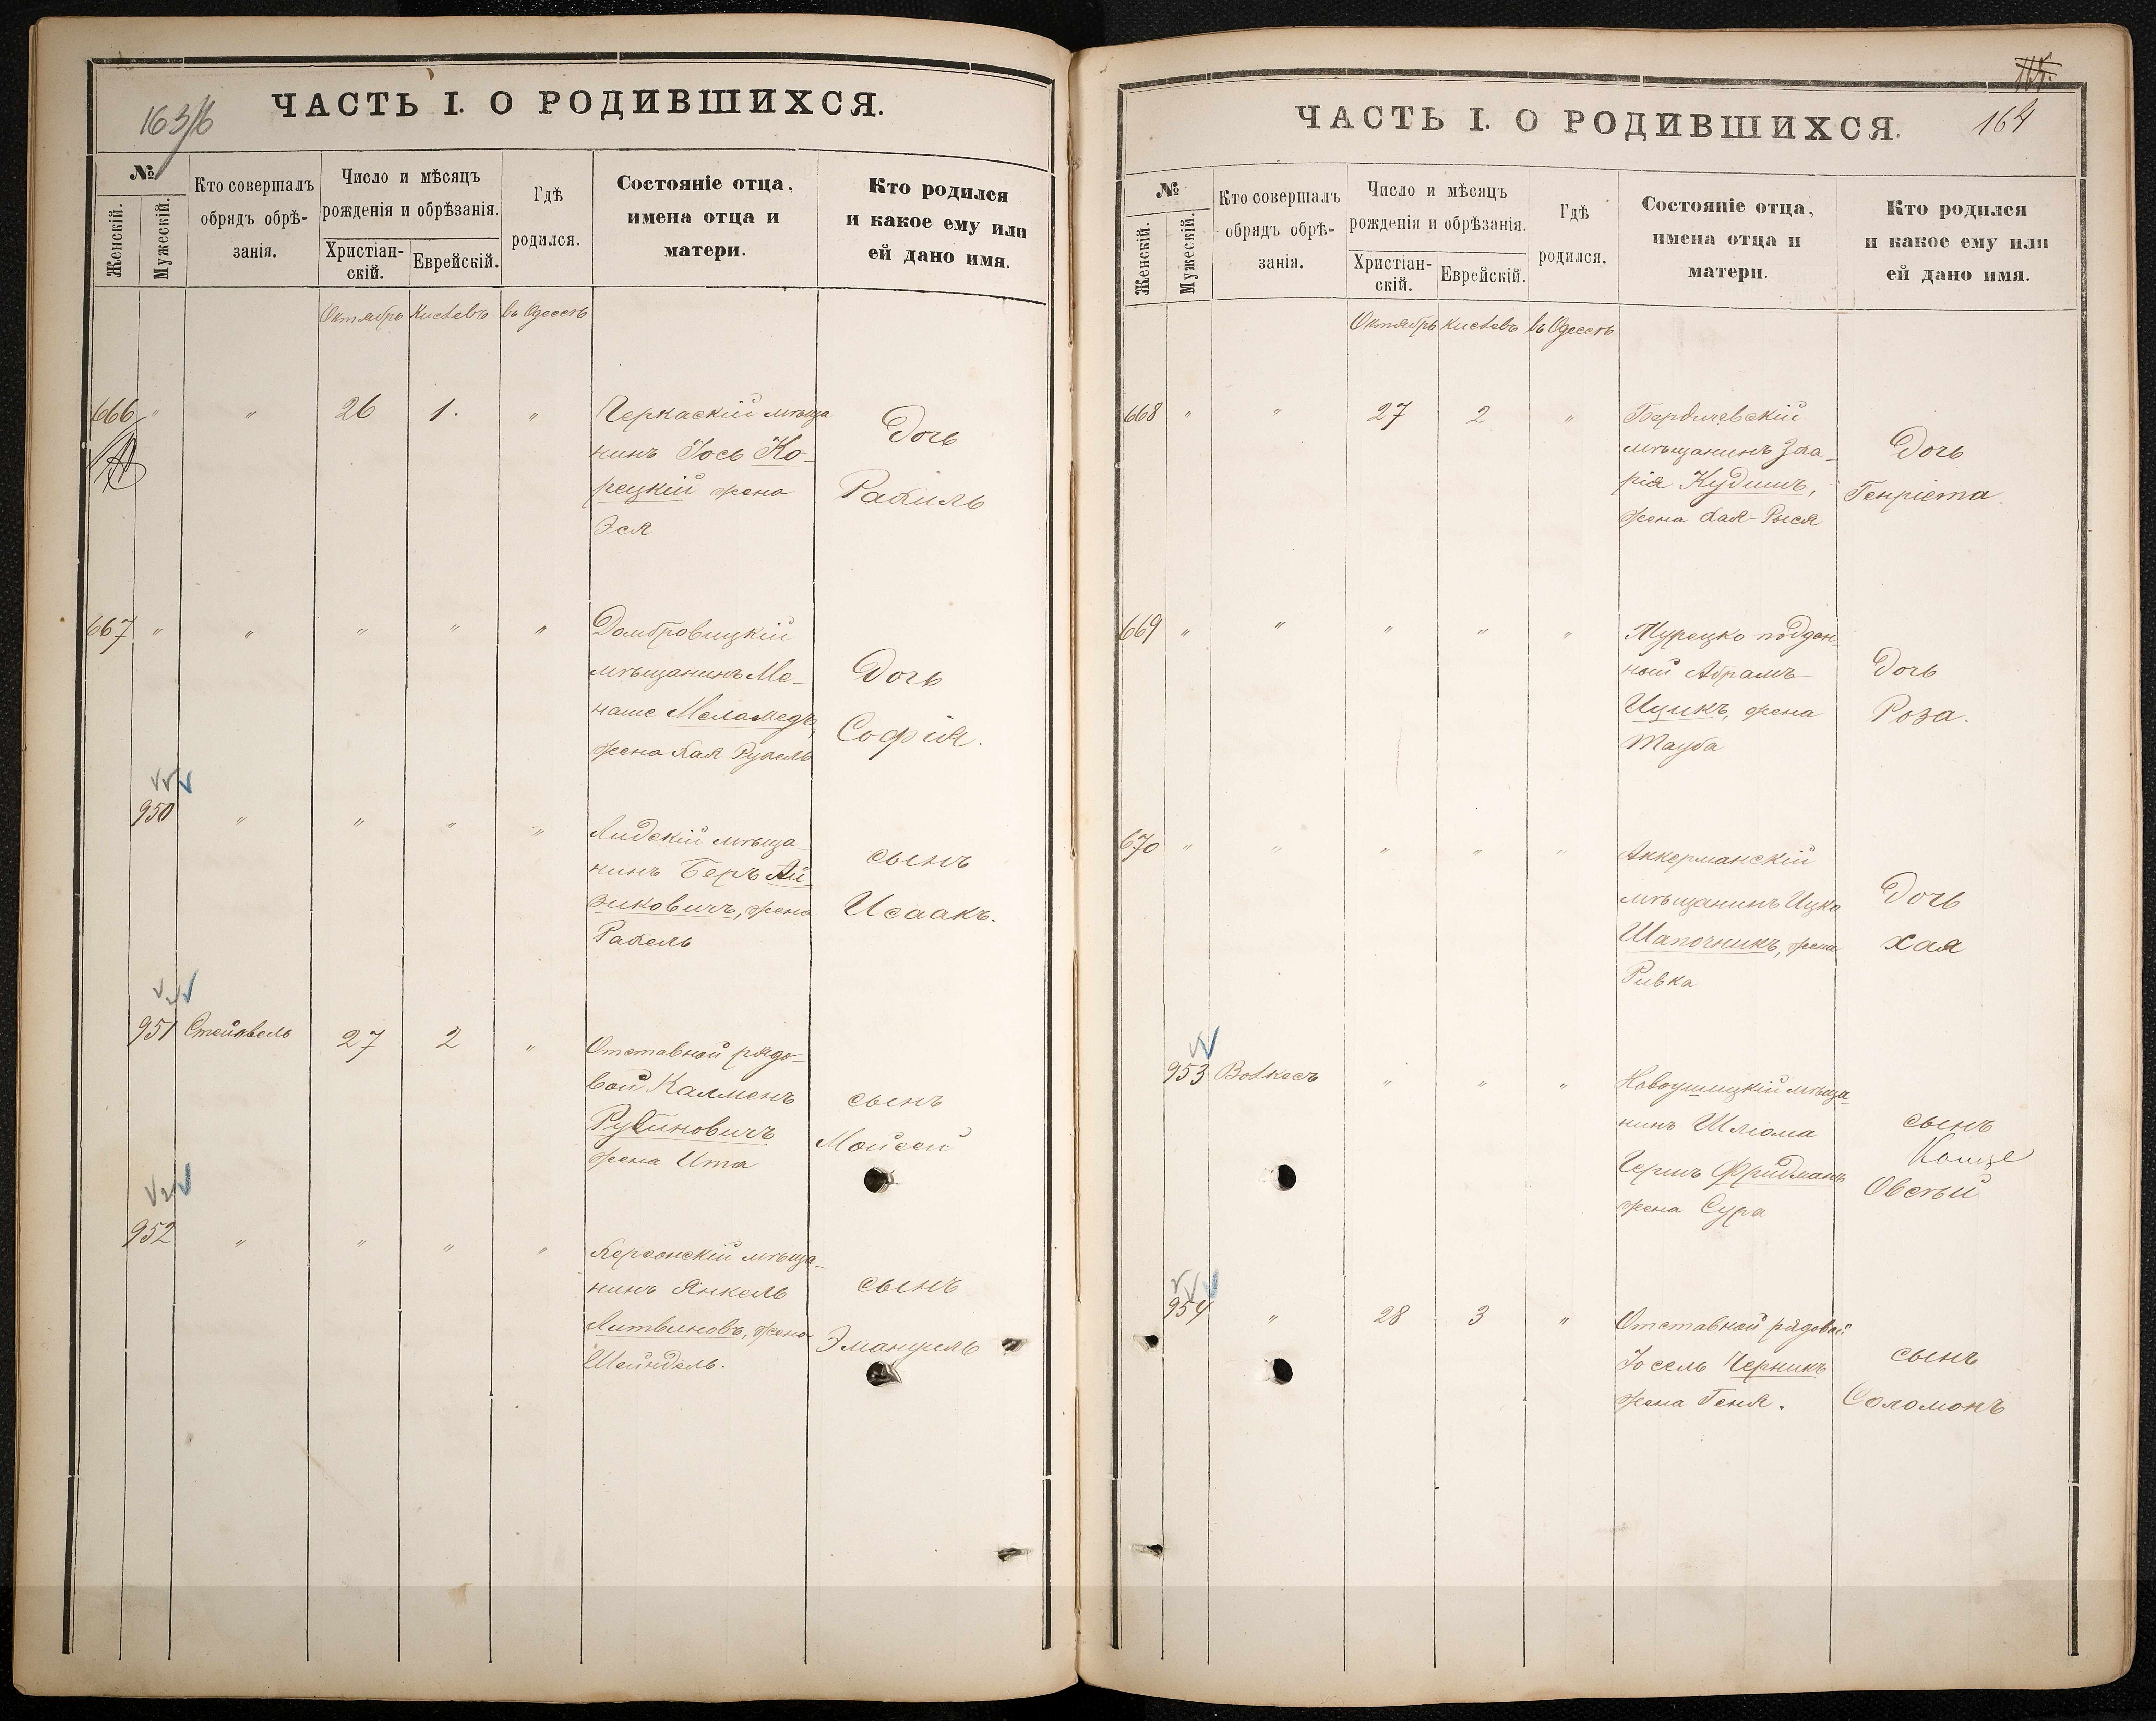 163/16
ЧАСТЬ I. О РОДИВШИХСЯ.
№
Женскій.
Мужескій.
Кто совершалъ
обрядъ обрѣ-
занія.
Число и мѣсяцъ
рожденія и обрѣзанія.
Христіан-
скій.
Еврейскій.
Гдѣ
родился.
Состояніе отца,
имена отца и
матери.
Кто родился
и какое ему или
ей дано имя.
Октябрь Кислевъ въ Одессѣ
666 " " 26 1. "
Черкаскій мѣща
нинъ Іось Ко-
рецкій жена
Эся
Дочь
Рахиль
667 " " " " "
Домбровицкій
мѣщанинъ Ме-
наше Меламедъ,
жена Хая Рухель
Дочь
Софія.
950 " " " "
Лидскій мѣща-
нинъ Беръ Ай-
зиковичъ, жена
Рахель
сынъ
Исаакъ.
951 27 2 "
Отставной рядо-
вой Калменъ
Рубиновичъ
жена Ита
сынъ
Мойсей
952 " " " "
Херсонскій мѣща-
нинъ Янкель
Литвиновъ, жена
Шейндель.
сынъ
Эмануель
164
ЧАСТЬ I. О РОДИВШИХСЯ.
№
Женскій.
Мужескій.
Кто совершалъ
обрядъ обрѣ-
занія.
Число и мѣсяцъ
рожденія и обрѣзанія.
Христіан-
скій.
Еврейскій.
Гдѣ
родился.
Состояніе отца,
имена отца и
матери.
Кто родился
и какое ему или
ей дано имя.
Октябрь Кислевъ въ Одессѣ
668 " " 27 2 "
Бердичевскій
мѣщанинъ Заха-
рія Кудишъ,
жена Хая-Рыся
Дочь
Генріета.
669 " " " " "
Турецко поддан-
ный Абрамъ
Ицикъ, жена
Тауба
Дочь
Роза.
670 " " " " "
Аккерманскій
мѣщанинъ Ицко
Шапочникъ, жена
Ривка
Дочь
Хая
953 " " "
Новоушицкій мѣща-
нинъ Шліома
Фридманъ
жена Сура
сынъ
Овсѣй
954 " 28 3 "
Отставной рядовой
Іосель Черникъ
жена Геня.
сынъ
Соломонъ